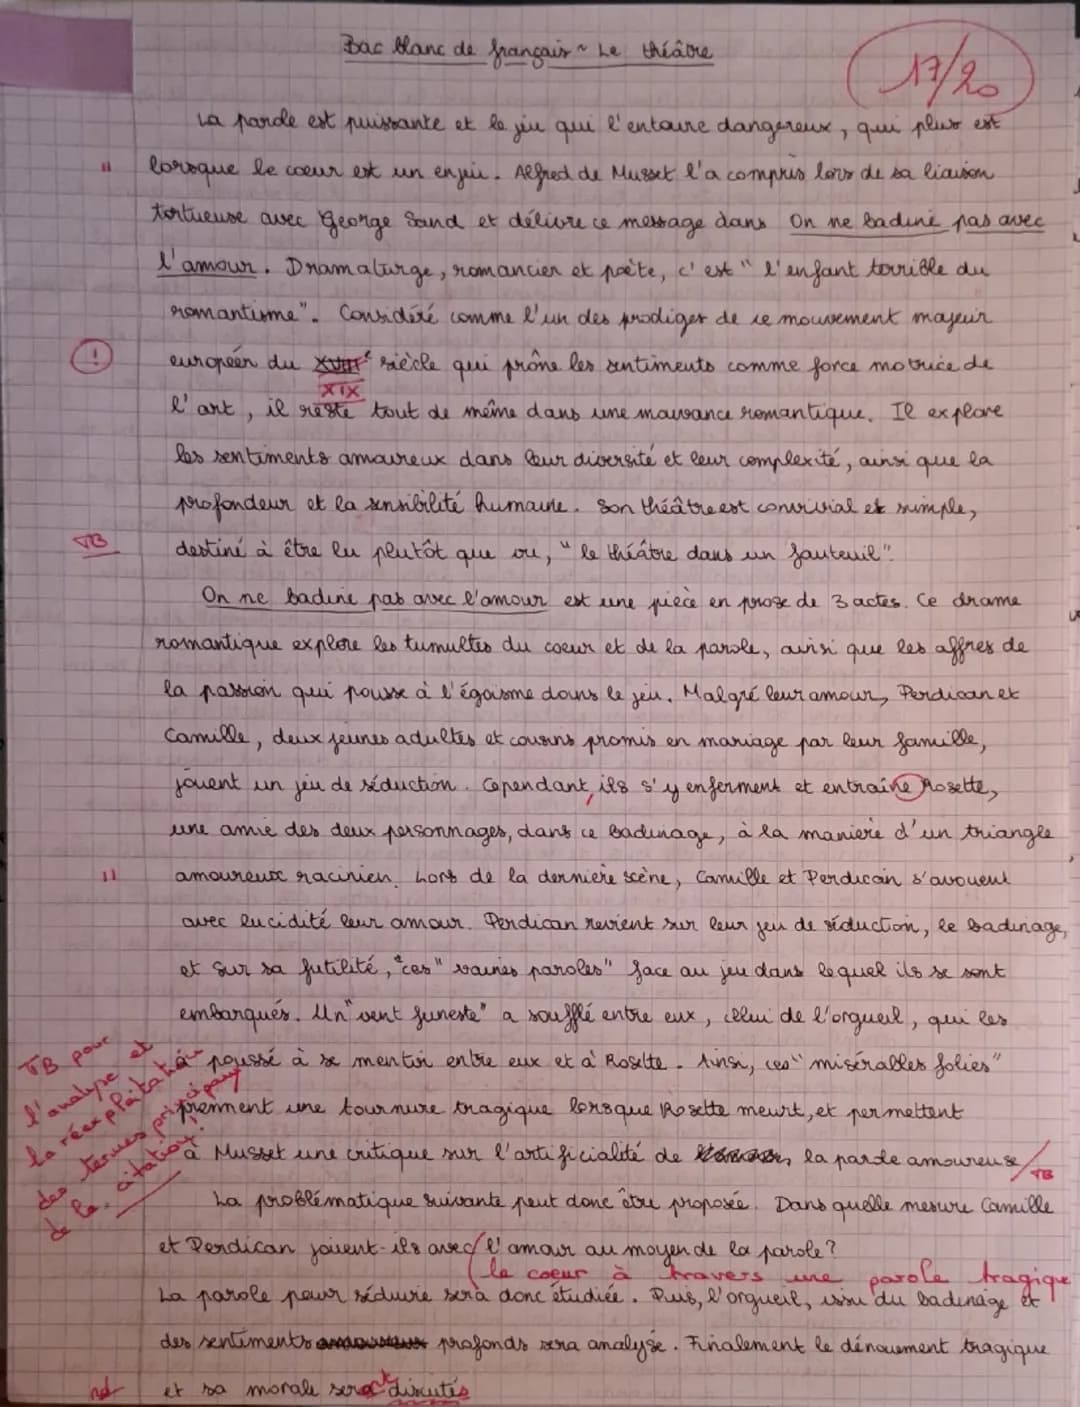 Bac blanc de français ~ Le théâtre
17/20
La parole est puissante et le jeu qui l'entoure dangereux, qui plus est
" lorsque le coeur est un enjeu. Alfred de Musset l'a compris lors de sa liaison
tortueuse avec George Sand et délivre ce message dans On ne badine pas avec
l'amour. Dramaturge, romancier et poète, c'est " l'enfant terrible du
romantisme". Considéré comme l'un des prodiges de ce mouvement majeur
! européen du XVIII e siècle qui prône les sentiments comme force motrice de
XIX
l'art, il reste tout de même dans une mouvance romantique. Il explore
les sentiments amoureux dans leur diversité et leur complexité, ainsi que la
profondeur et la sensibilité humaine. Son théâtre est convivial et simple,
TB destiné à être lu plutôt que vu, " le théâtre dans un fauteuil".
On ne badine pas avec l'amour est une pièce en prose de 3 actes. Ce drame
romantique explore les tumultes du coeur et de la parole, ainsi que les affres de
la passion qui pousse à l'égoïsme dans le jeu. Malgré leur amour, Perdican et
Camille, deux jeunes adultes et cousins promis en mariage par leur famille,
jouent un jeu de séduction. Cependant, ils s'y enferment et entraîne Rosette,
une amie des deux personnages, dans ce badinage, à la manière d'un triangle
" amoureux racinien. Lors de la dernière scène, Camille et Perdican s'avouent
avec lucidité leur amour. Perdican revient sur leur jeu de séduction, le badinage,
et sur sa futilité, "ces" vaines paroles" face au jeu dans lequel ils se sont
embarqués. Un "vent funeste" a soufflé entre eux, celui de l'orgueil, qui les
a poussé à se mentir entre eux et à Rosette. Ainsi, ces "misérables folies"
prennent une tournure tragique lorsque Rosette meurt, et permettent
à Musset une critique sur l'artificialité de la parole amoureuse/
TB
TB pour
l'analyse et
la réexploitation
des termes principaux
de la citation!
La problématique suivante peut donc être proposée. Dans quelle mesure Camille
et Perdican jouent-ils avec l'amour au moyen de la parole?
le coeur à travers une parole tragique
La parole pour séduire sera donc étudiée. Puis, l'orgueil, issu du badinage et
des sentiments profonds sera analysé. Finalement le dénouement tragique
et sa morale seront discutés